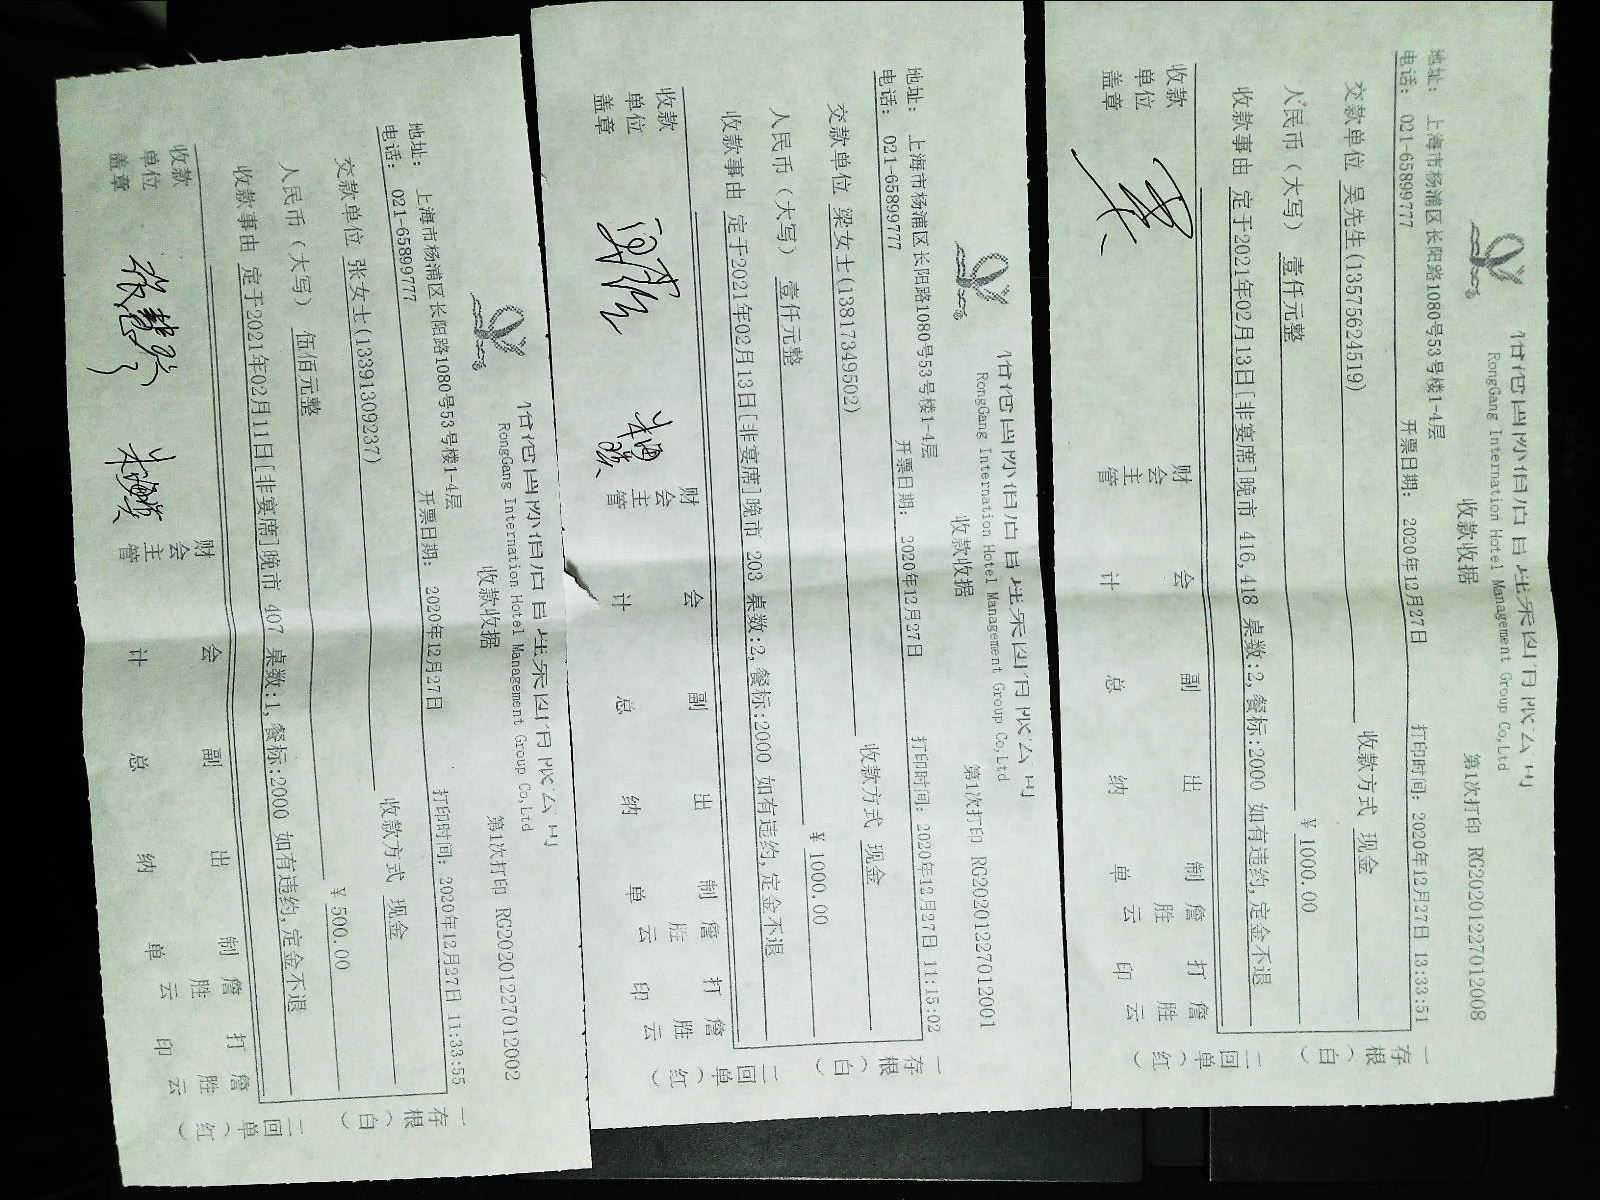 RongGang International Hotel Management Group Co,Ltd
收款收据
第1次打印 RG20201227012008
地址: 上海市杨浦区长阳路1080号53号楼1-4层
电话: 021-65899777
开票日期: 2020年12月27日
打印时间: 2020年12月27日 13:33:51
交款单位 吴先生(13575624519)
收款方式 现金
人民币（大写） 壹仟元整
¥ 1000.00
收款事由 定于2021年02月13日[非宴席]晚市 416,418 桌数:2,餐标:2000 如有违约,定金不退
收款单位盖章
财会主管
会计
副总
出纳
制单 詹胜云
打印 詹胜云
一存根（白）
二回单（红）
RongGang International Hotel Management Group Co,Ltd
收款收据
第1次打印 RG20201227012001
地址: 上海市杨浦区长阳路1080号53号楼1-4层
电话: 021-65899777
开票日期: 2020年12月27日
打印时间: 2020年12月27日 11:15:02
交款单位 梁女士(13817349502)
收款方式 现金
人民币（大写） 壹仟元整
¥ 1000.00
收款事由 定于2021年02月13日[非宴席]晚市 203 桌数:2,餐标:2000 如有违约,定金不退
收款单位盖章
财会主管
会计
副总
出纳
制单 詹胜云
打印 詹胜云
一存根（白）
二回单（红）
RongGang International Hotel Management Group Co,Ltd
收款收据
第1次打印 RG20201227012002
地址: 上海市杨浦区长阳路1080号53号楼1-4层
电话: 021-65899777
开票日期: 2020年12月27日
打印时间: 2020年12月27日 11:33:55
交款单位 张女士(13391309237)
收款方式 现金
人民币（大写） 伍佰元整
¥ 500.00
收款事由 定于2021年02月11日[非宴席]晚市 407 桌数:1,餐标:2000 如有违约,定金不退
收款单位盖章
财会主管
会计
副总
出纳
制单 詹胜云
打印 詹胜云
一存根（白）
二回单（红）